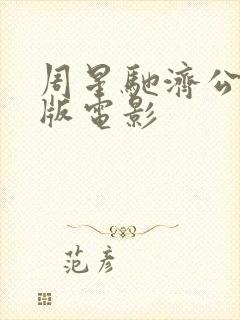 周星馳濟公
版電影
范彥